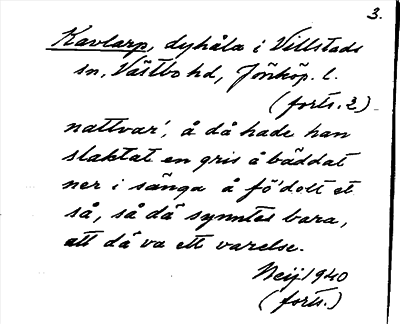 3.
Kavlarp, dyhåla i Villstads
sn, Västbo hd, Jönköp. l.
(forts. 2)
nattvar', å då hade han
slaktat en gris å bäddat
ner i sänga å fö'dolt et
så, så dä synntes bara,
att dä va ett varelse.
Heij 1940
(forts.)